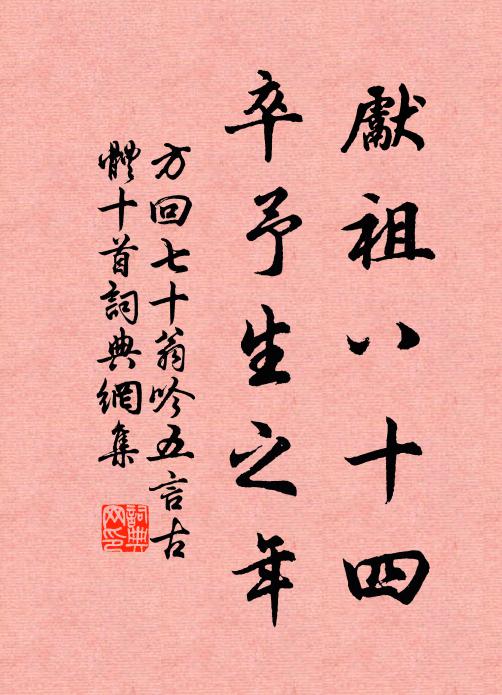 獻祖八十四
卒予生之年
方回七十翁吟五言古
體十首詞典網集
詞典
网印